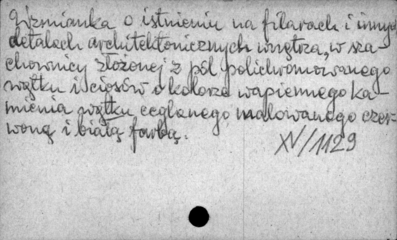 Wzmianka o istnieniu na filarach i innych
detalach architektonicznych wnętrza, w sza
chownicy złożonej z pól polichromowanego
wątku i ciosów o kolorze wapiennego ka
mienia wątku ceglanego, malowanego czer-
woną i białą farbą.
XV/1129